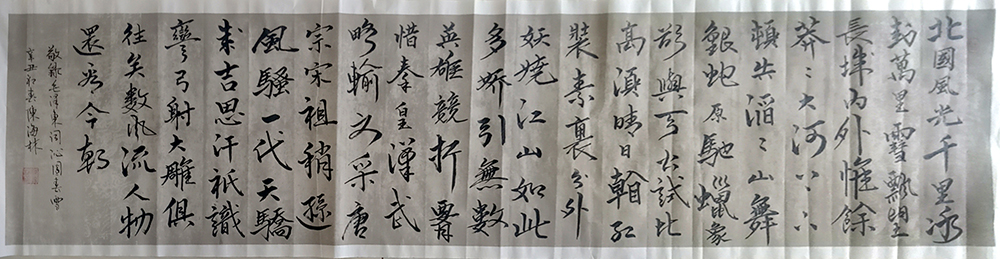 北國風光千里冰
封萬里雪飄望
長城內外惟餘
莽〻大河上下
頓失滔〻山舞
銀蛇原馳蠟象
欲與天公試比
高須晴日看紅
裝素裹分外
妖嬈江山如此
多嬌引無數
英雄競折腰
惜秦皇漢武
略輸文采唐
宗宋祖稍遜
風騷一代天驕
成吉思汗祇識
彎弓射大雕俱
往矣數風流人物
還看今朝
敬録毛澤東詞沁園春雪
辛丑初春陳海林